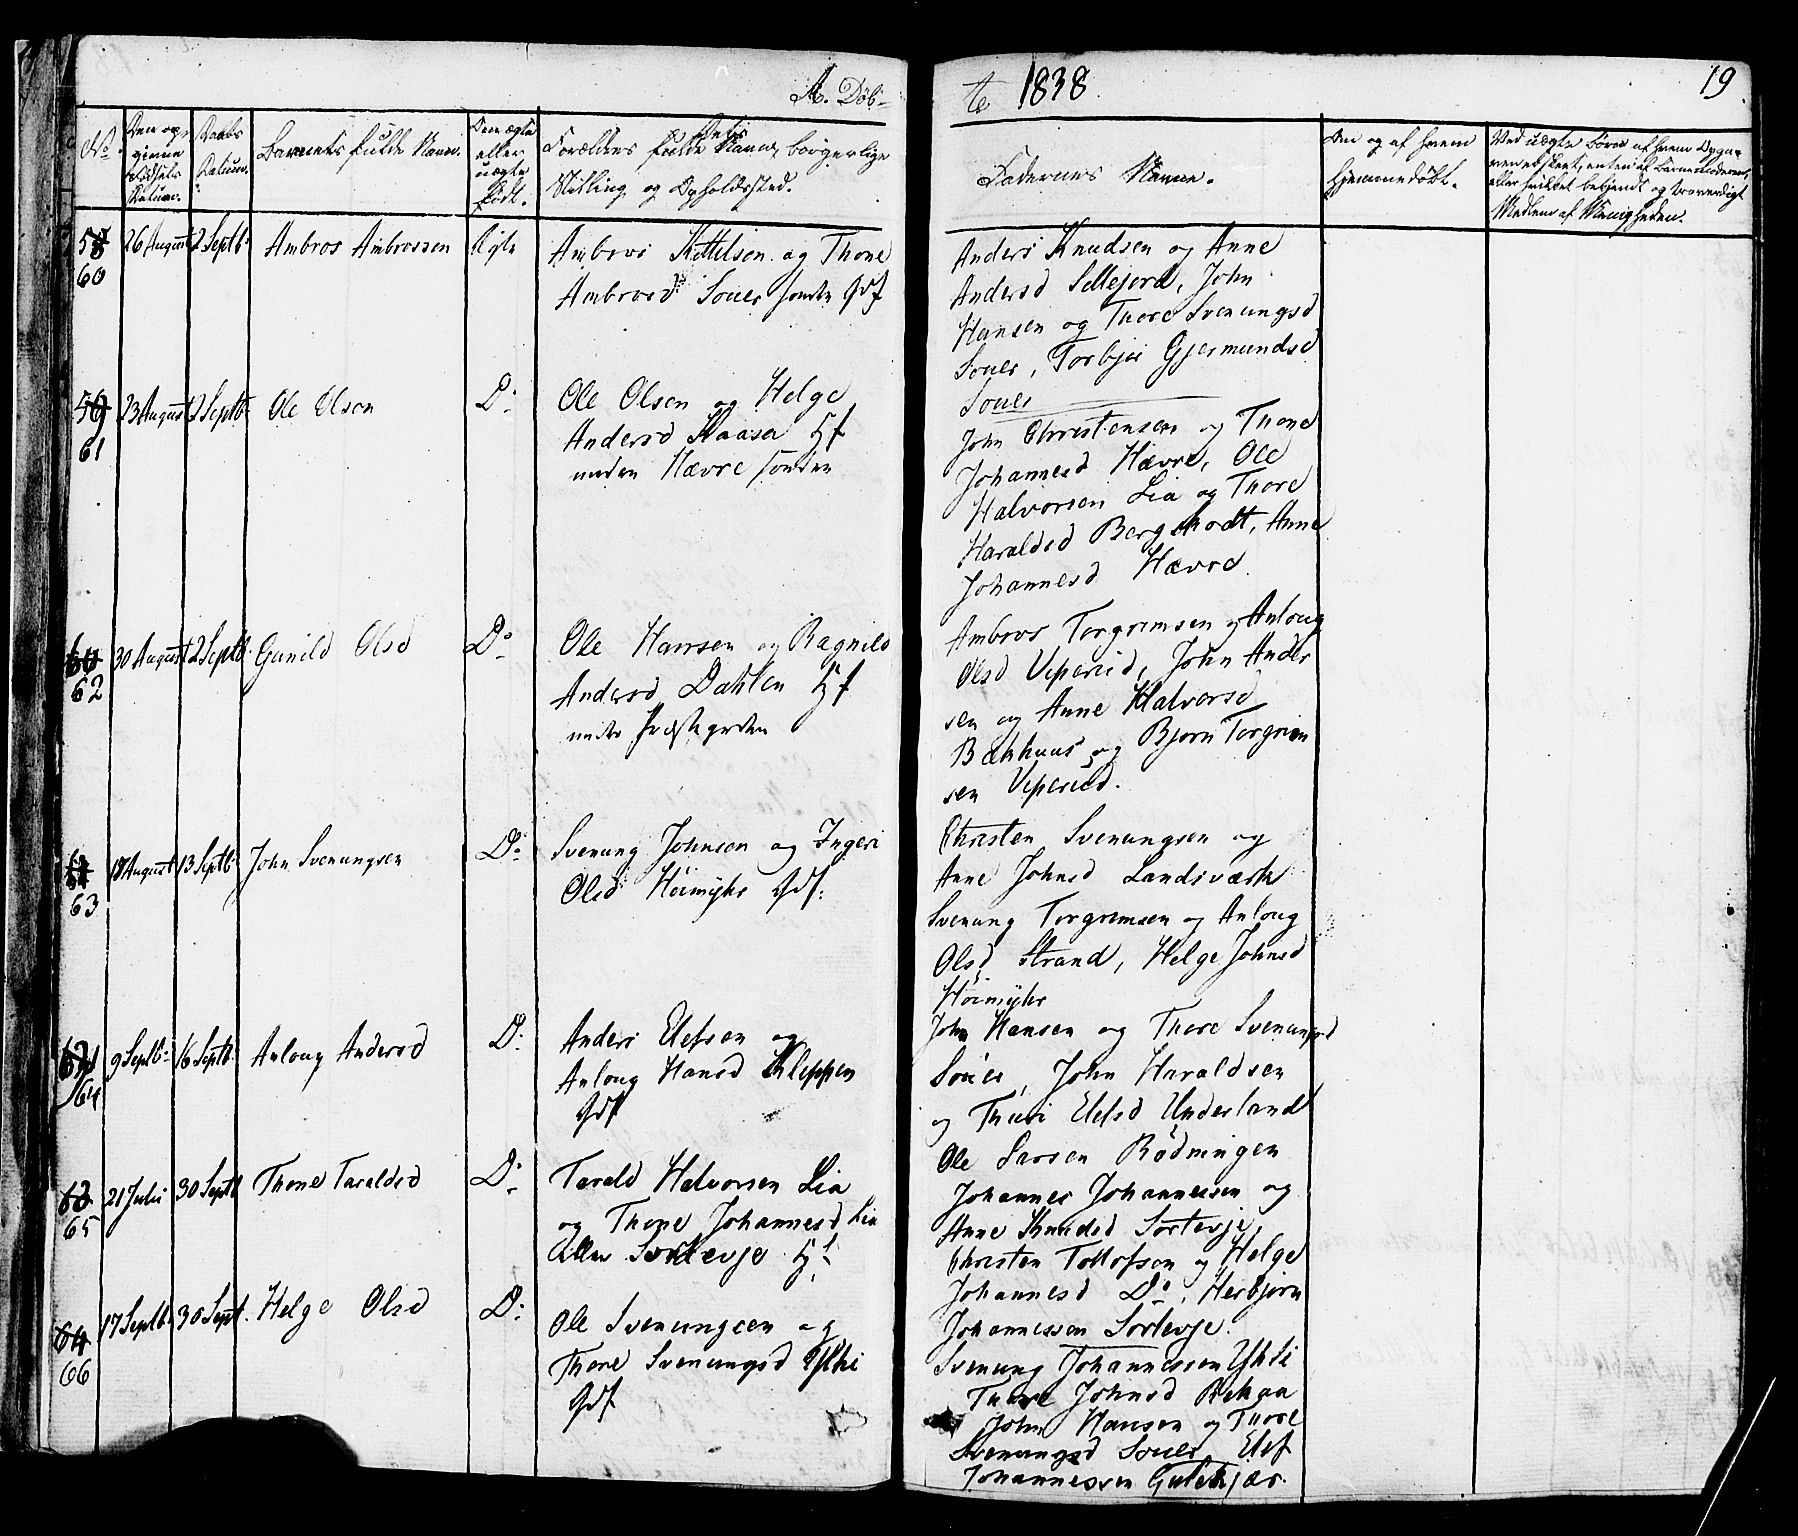 A. Døb-
te 1838
19
No.
Barnets fulde Navn.
Forældres fulde Navne, borgerlige
Stilling og Opholdssted.
Faddernes Navne.
Om og af hvem
hjemmedøbt.
Medlem af Menigheden.
58 26 August 2 Septb. Ambros Ambrossen Ægte
60
Ambros Kittilsen og Thone
Ambrosd Soves
Anders Knudsen og Anne
Andersd Sillejord, John
Hansen og Thore Svenungsd
Soves, Torbjør Gjermundsd
Soves
59 23 August 2 Septb. Ole Olsen Do
61
Ole Olsen og Helge
Andersd Kaasa Hf
under Hævre
John Christensen og Thone
Johannesd Hævre, Ole
Halvorsen Lia og Thore
Haraldsd Bergskodt, Anne
Johannesd Hævre
60 30 August 2 Septb. Gunild Olsd Do
62
Ole Hansen og Ragnild
Andersd Dahlen Hf
under Præstegarden
Ambros Torgrimsen og Anlaug
Olsd Viperud, John Ander
sen og Anne Halvorsd
Bakhuus og Bjørn Torgrim
sen Viperud.
61 18 August 13 Septb. John Svenungsen Do
63
Svenung Johnsen og Ingeri
Olsd Høimyhr Gdf.
Christen Svenungsen og
Anne Johnsd Landsværk
Svenung Torgrimsen og Anlaug
Olsd Strand, Helge Johnsd
Høimyhr
62 9 Septb. 16 Septb. Anlaug Andersd Do
64
Anders Elefsen og
Anlaug Hansd Kleppen
Gdf
John Hansen og Thore Svenungsd
Soves, John Haraldsen
og Thuri Elefsd Underland
Ole Larsen Rødningen
63 21 Juli 30 Septb Thone Taraldsd Do
65
Tarald Halvorsen Lia
og Thone Johannesd Lia
eller Sortevje Hf
Johannes Johannessen og
Anne Knudsd Sortevje,
Christen Tollofsen og Helge
Johannesd Do, Herbjørn
Johannessen Sortevje.
64 17 Septb. 30 Sept. Helge Olsd Do
66
Ole Svenungsen og
Thore Svenungsd Ylthi
Gdf
Svenung Johannessen
Thore Johnsd Bakaa
John Hansen og Thore
Svenungsd Soves, Elef
Johannessen Gulekjær.